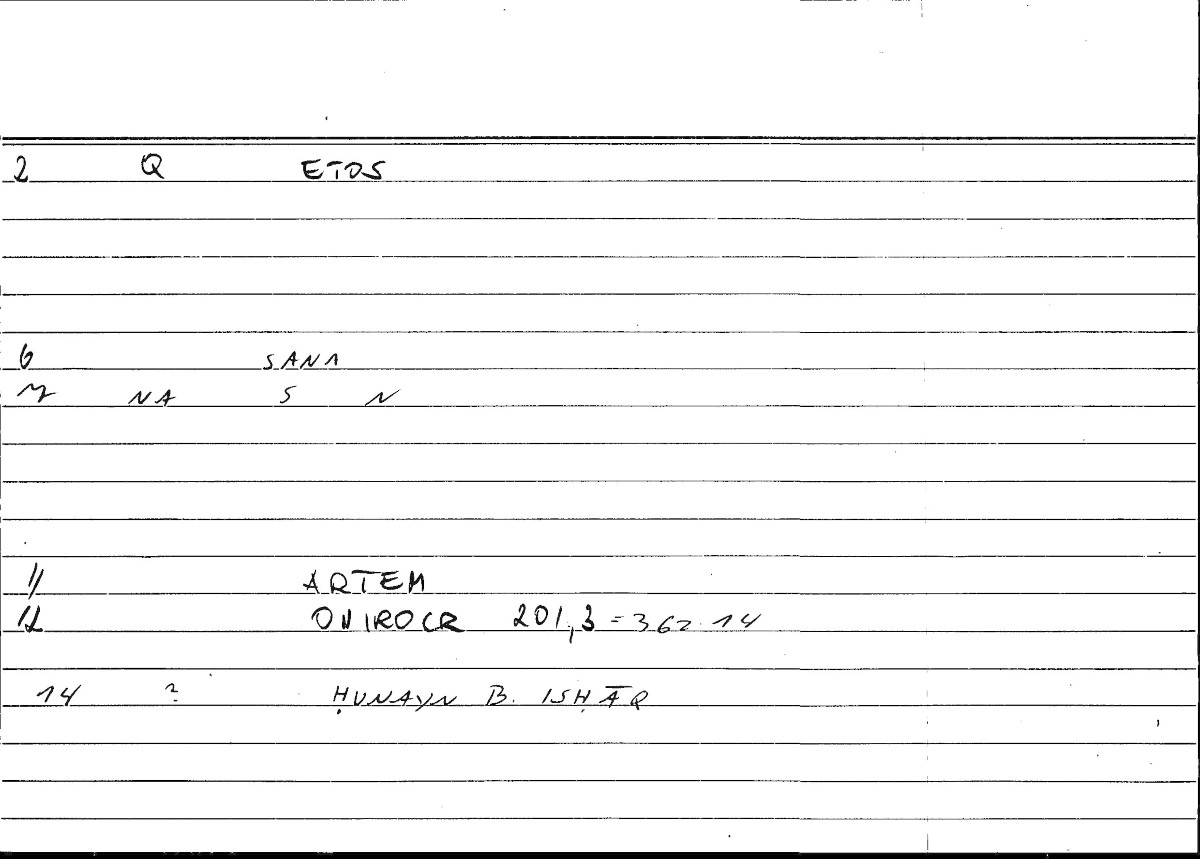 2 Q ETOS
6 SANA
M NA S N
11 ARTEM
12 ONIROCR 201,3 = 362.14
14 ? ḤUNAYN B. ISḤĀQ